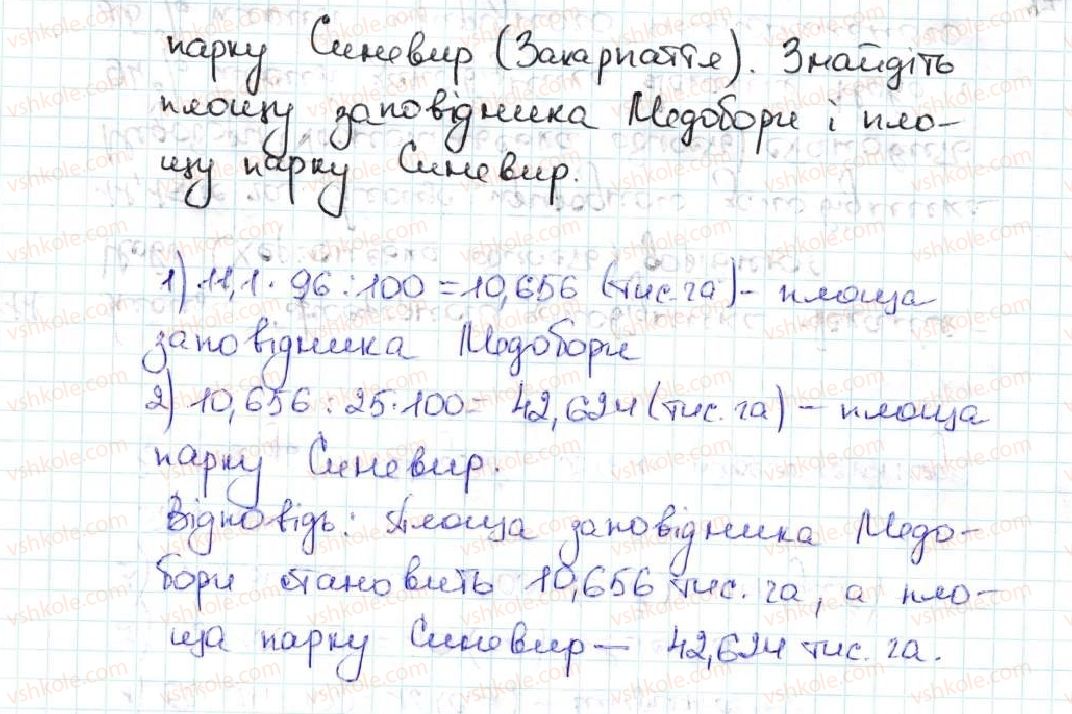 парку Синевир (Закарпаття). Знайдіть
площу заповідника Медобори і пло-
щу парку Синевир.
1) 11,1 · 96 : 100 = 10,656 (тис. га) - площа
заповідника Медобори
2) 10,656 : 25 · 100 = 42,624 (тис. га) - площа
парку Синевир.
Відповідь: площа заповідника Медо-
бори становить 10,656 тис. га, а пло-
ща парку Синевир — 42,624 тис. га.